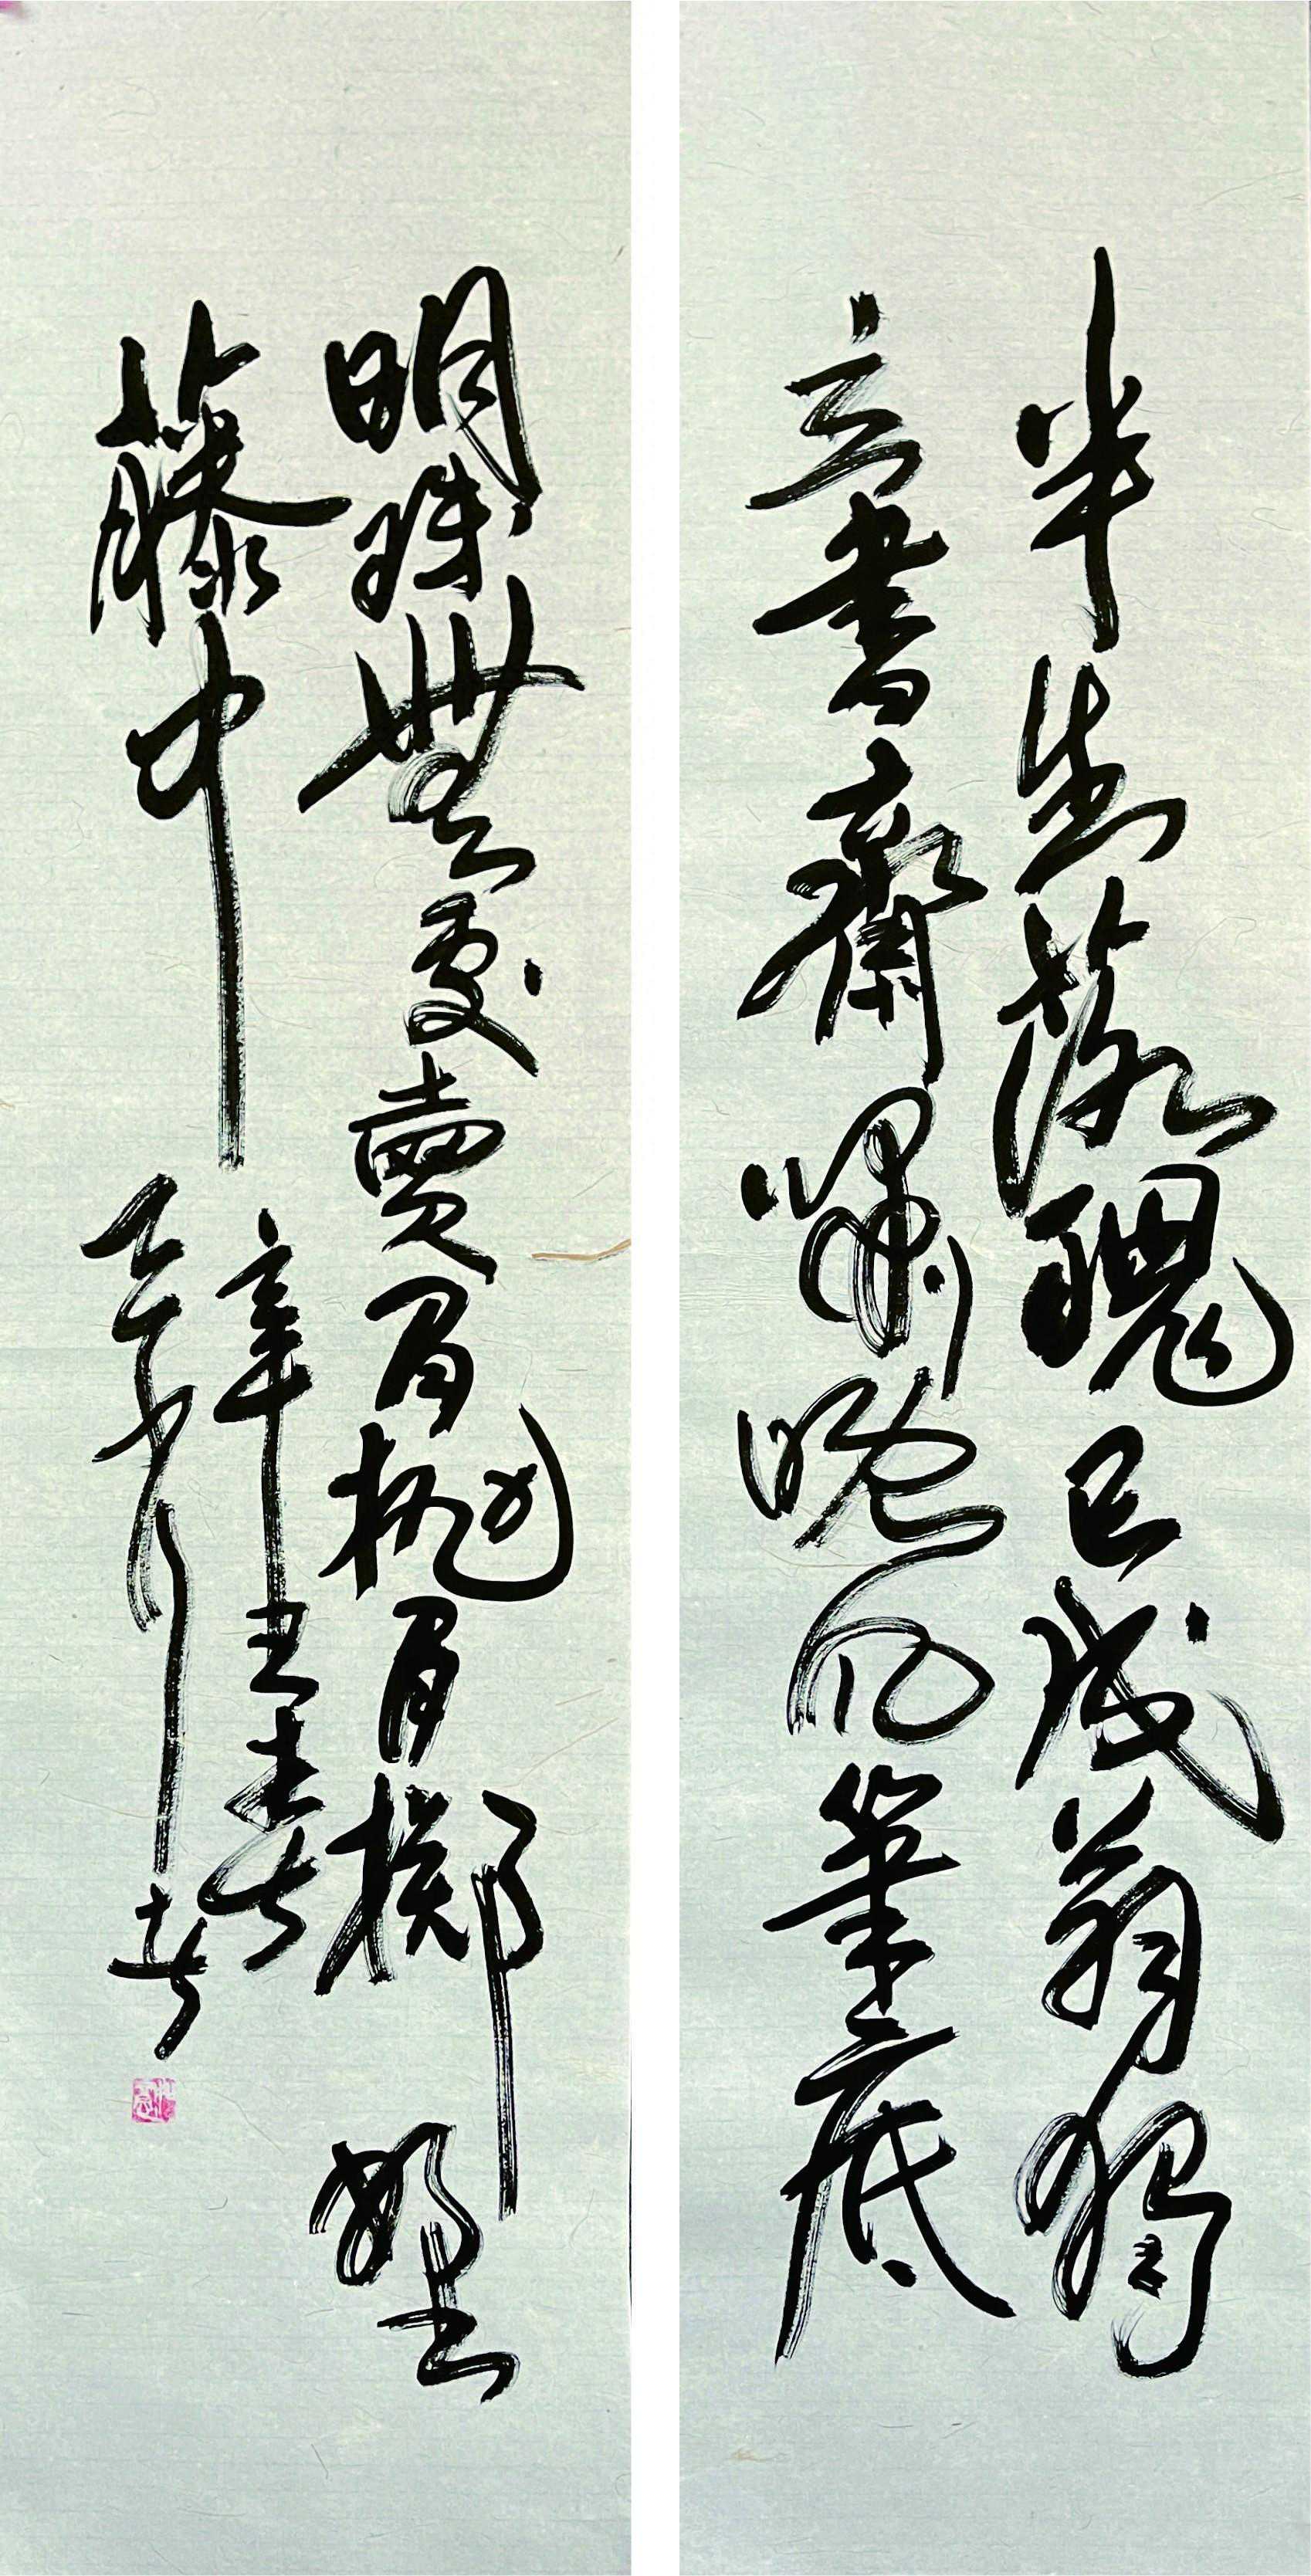 半生落魄已成翁獨
立書齋嘯晚風筆底
明珠無處賣閒拋閒擲野
藤中
辛丑春